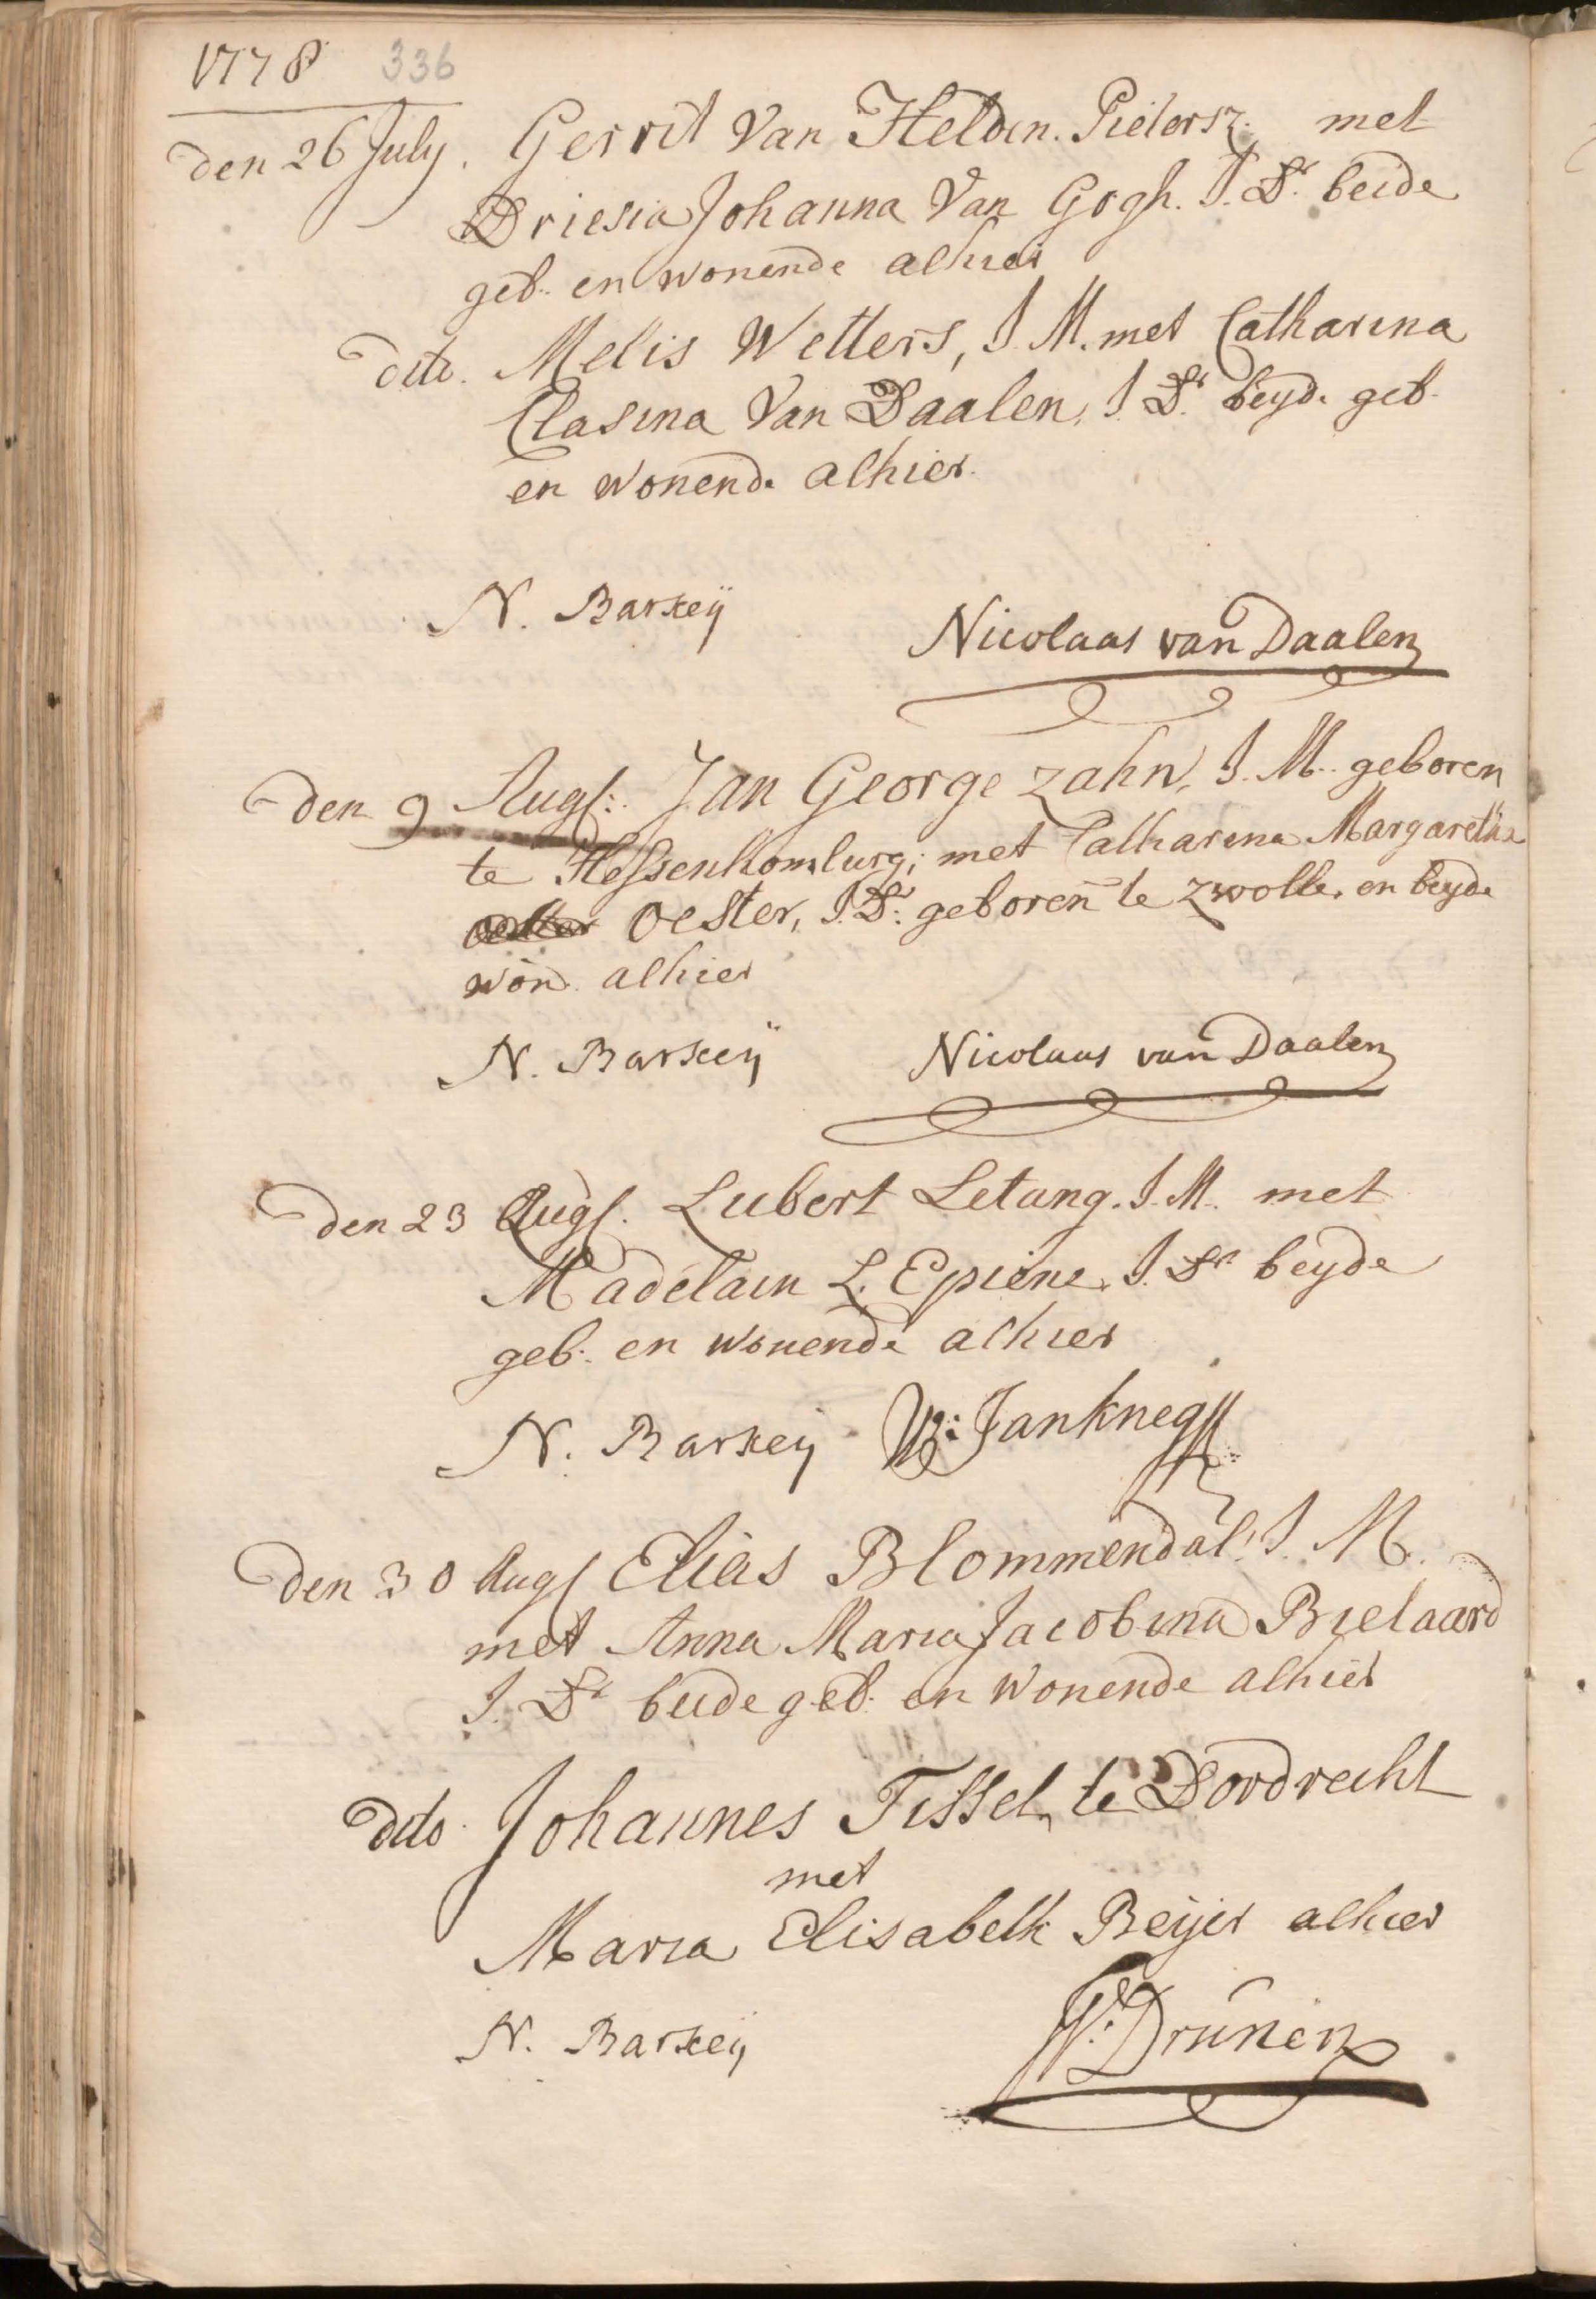 1778 336
den 26 July. Gerrit Van Helden. Pietersz. met
Driesia Johanna Van Gogh. J. Dr. beide
geb. en wonende alhier
dito. Melis Wetters, J. M. met Catharina
Clasina Van Daalen, J. Dr. beyde geb.
en wonende alhier.
N. Barkeij
Nicolaas van Daalen
den 9 Augs: Jan George Zahn, J. M. geboren
te Hessenhomburg; met Catharina Margaretha
Oester, J. Dr: geboren te Zwolle, en beyde
won. alhier
N. Barkeij Nicolaas van Daalen
den 23 Augs. Lubert Letang. J. M. met
Madelain L. Epiene. J. Dr beyde
geb. en wonende alhier
N. Barkeij W: Janknegt
den 30 Augs Elias Blommendal. J. M.
met Anna Maria Jacobina Bielaard
J. Dr beide geb. en wonende alhier
dito Johannes Tissel, te Dordrecht
met
Maria Elisabeth Beijer alhier
N. Barkeij
W: Drunen